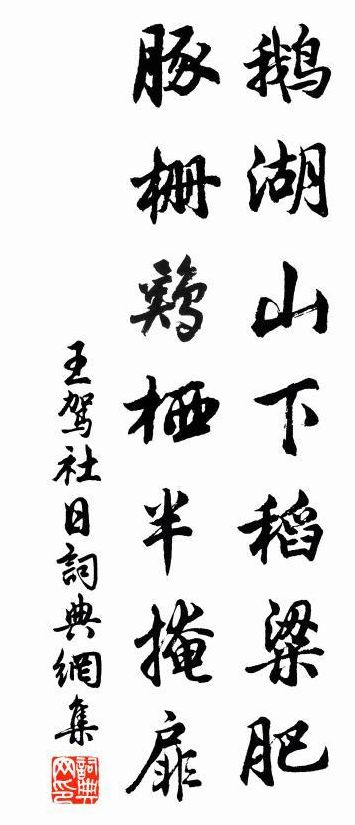 鹅湖山下稻粱肥
豚栅鷄栖半掩扉
王驾社日詞典網集
詞典网印